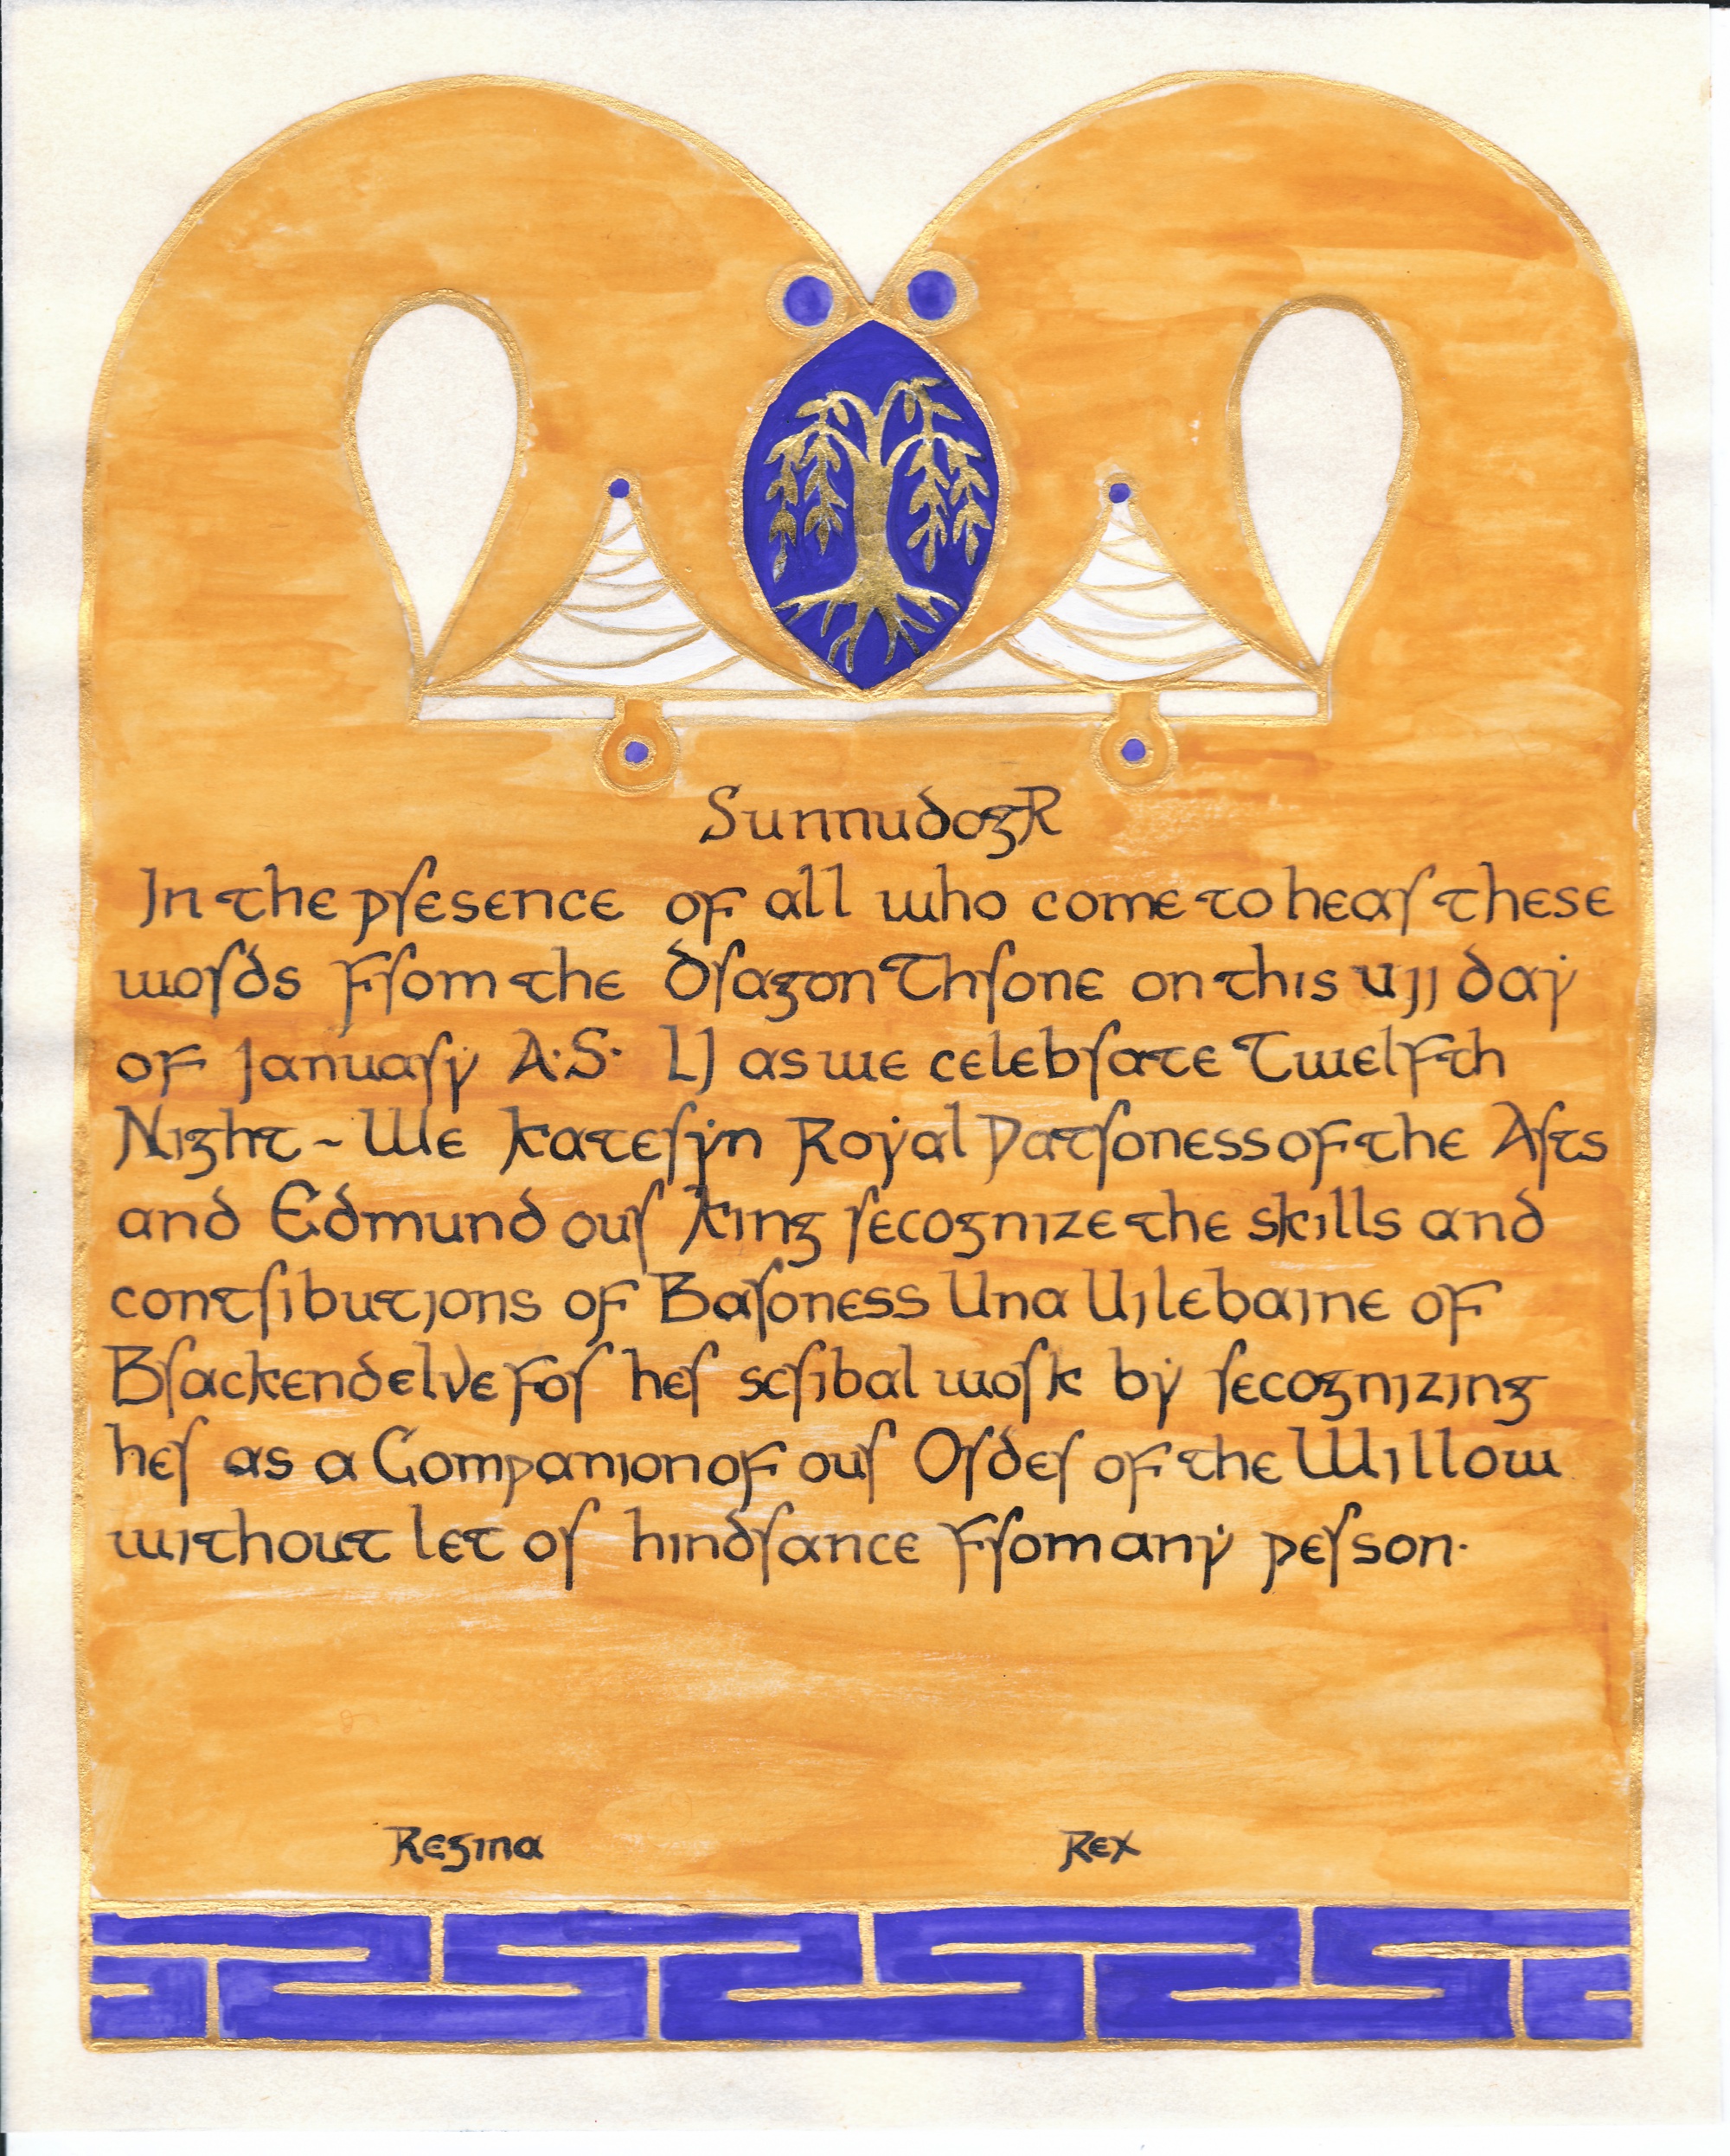 SunnudogR
In the presence of all who come to hear these
words from the Dragon Throne on this vjj day
of January A.S. LJ as we celebrate Twelfth
Night ~ We Kateryn Royal Patroness of the Arts
and Edmund our King recognize the skills and
contributjons of Baroness Una Vjlebajne of
Brackendelve for her scribal work by recognjzing
her as a Companion of our Order of the Willow
without let or hindrance from any person.
Regina Rex